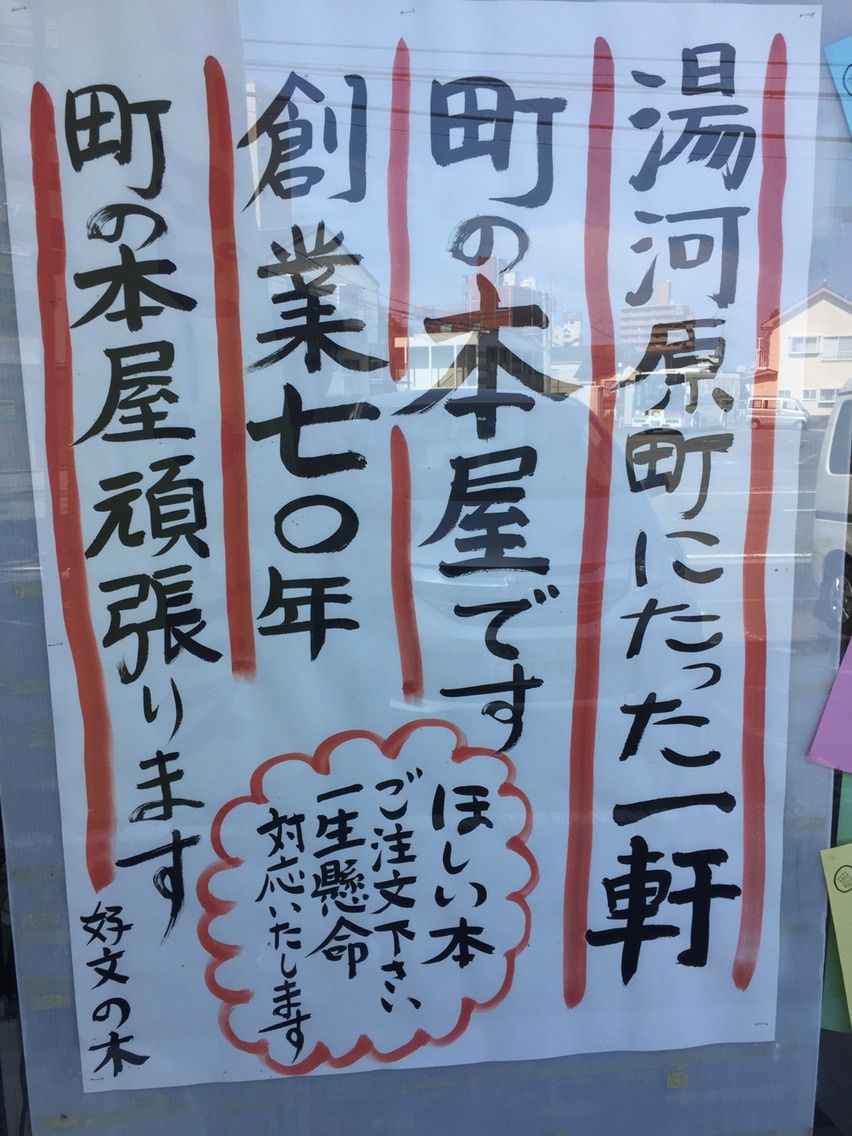 湯河原町にたった一軒
町の本屋です
創業七〇年
町の本屋頑張ります
ほしい本
ご注文下さい
一生懸命
対応いたします
好文の木